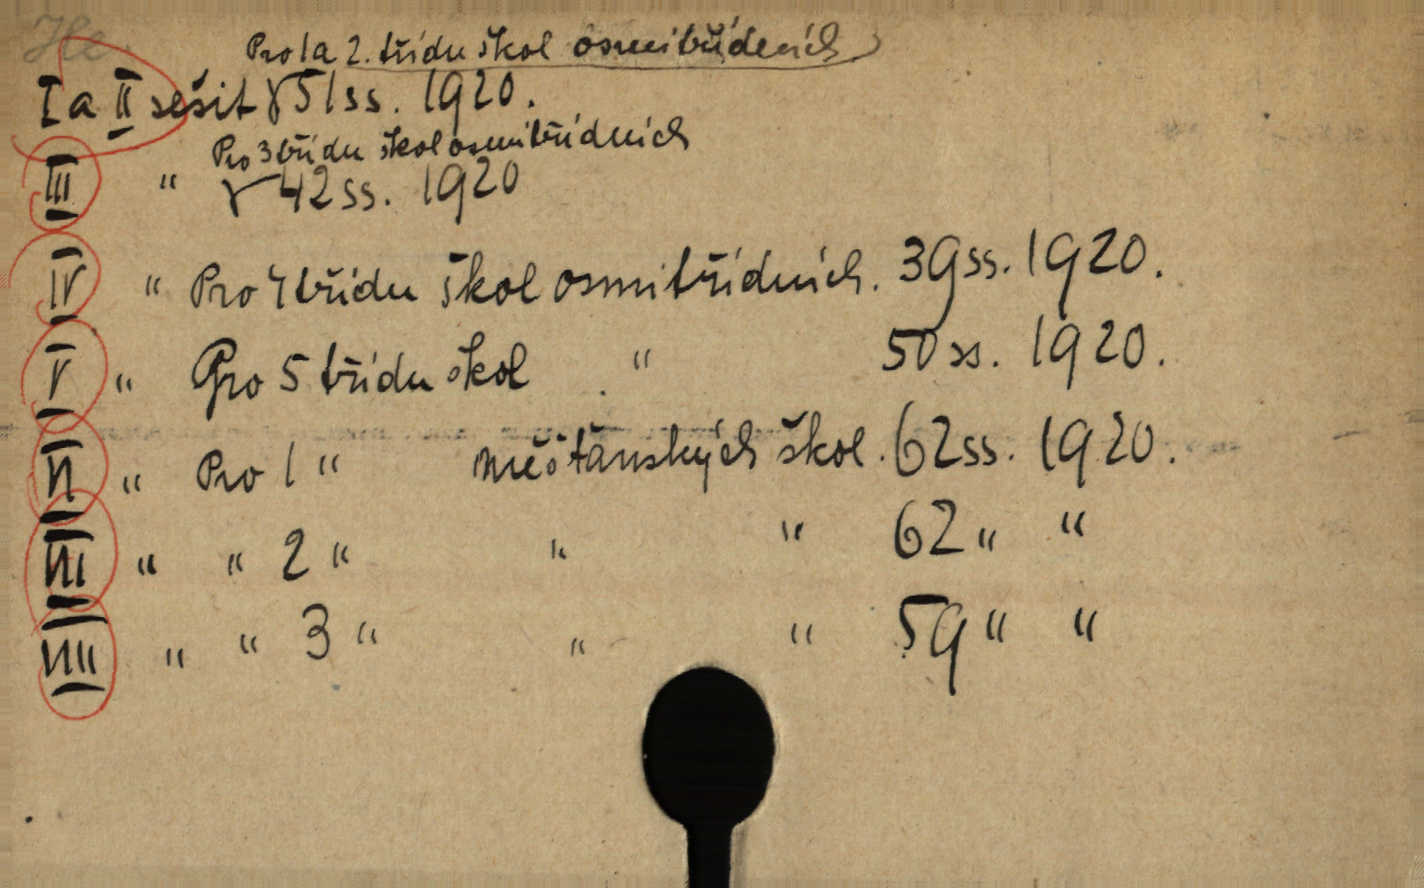 Pro 1 a 2. třídu škol osmitřídních
I a II sešit 51 ss. 1920.
Pro 3 třídu škol osmitřídních
III " 42 ss. 1920
IV " Pro 4 třídu škol osmitřídních. 39 ss. 1920.
V " Pro 5 třídu škol " 50 ss. 1920.
VI " Pro 1 " měšťanských škol. 62 ss. 1920.
VII " " 2 " " " 62 " "
VIII " " 3 " " " 59 " "